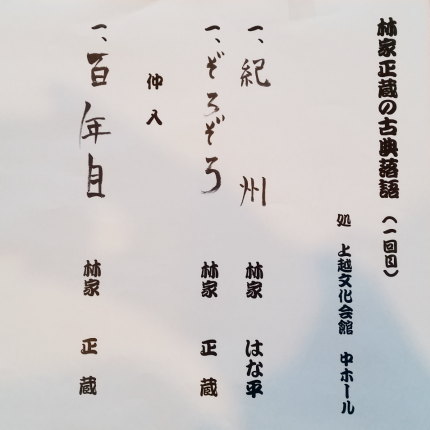 林家正蔵の古典落語（一回目）
処 上越文化会館 中ホール
一、紀州 林家 はな平
一、ぞろぞろ 林家 正蔵
仲入
一、百年目 林家 正蔵